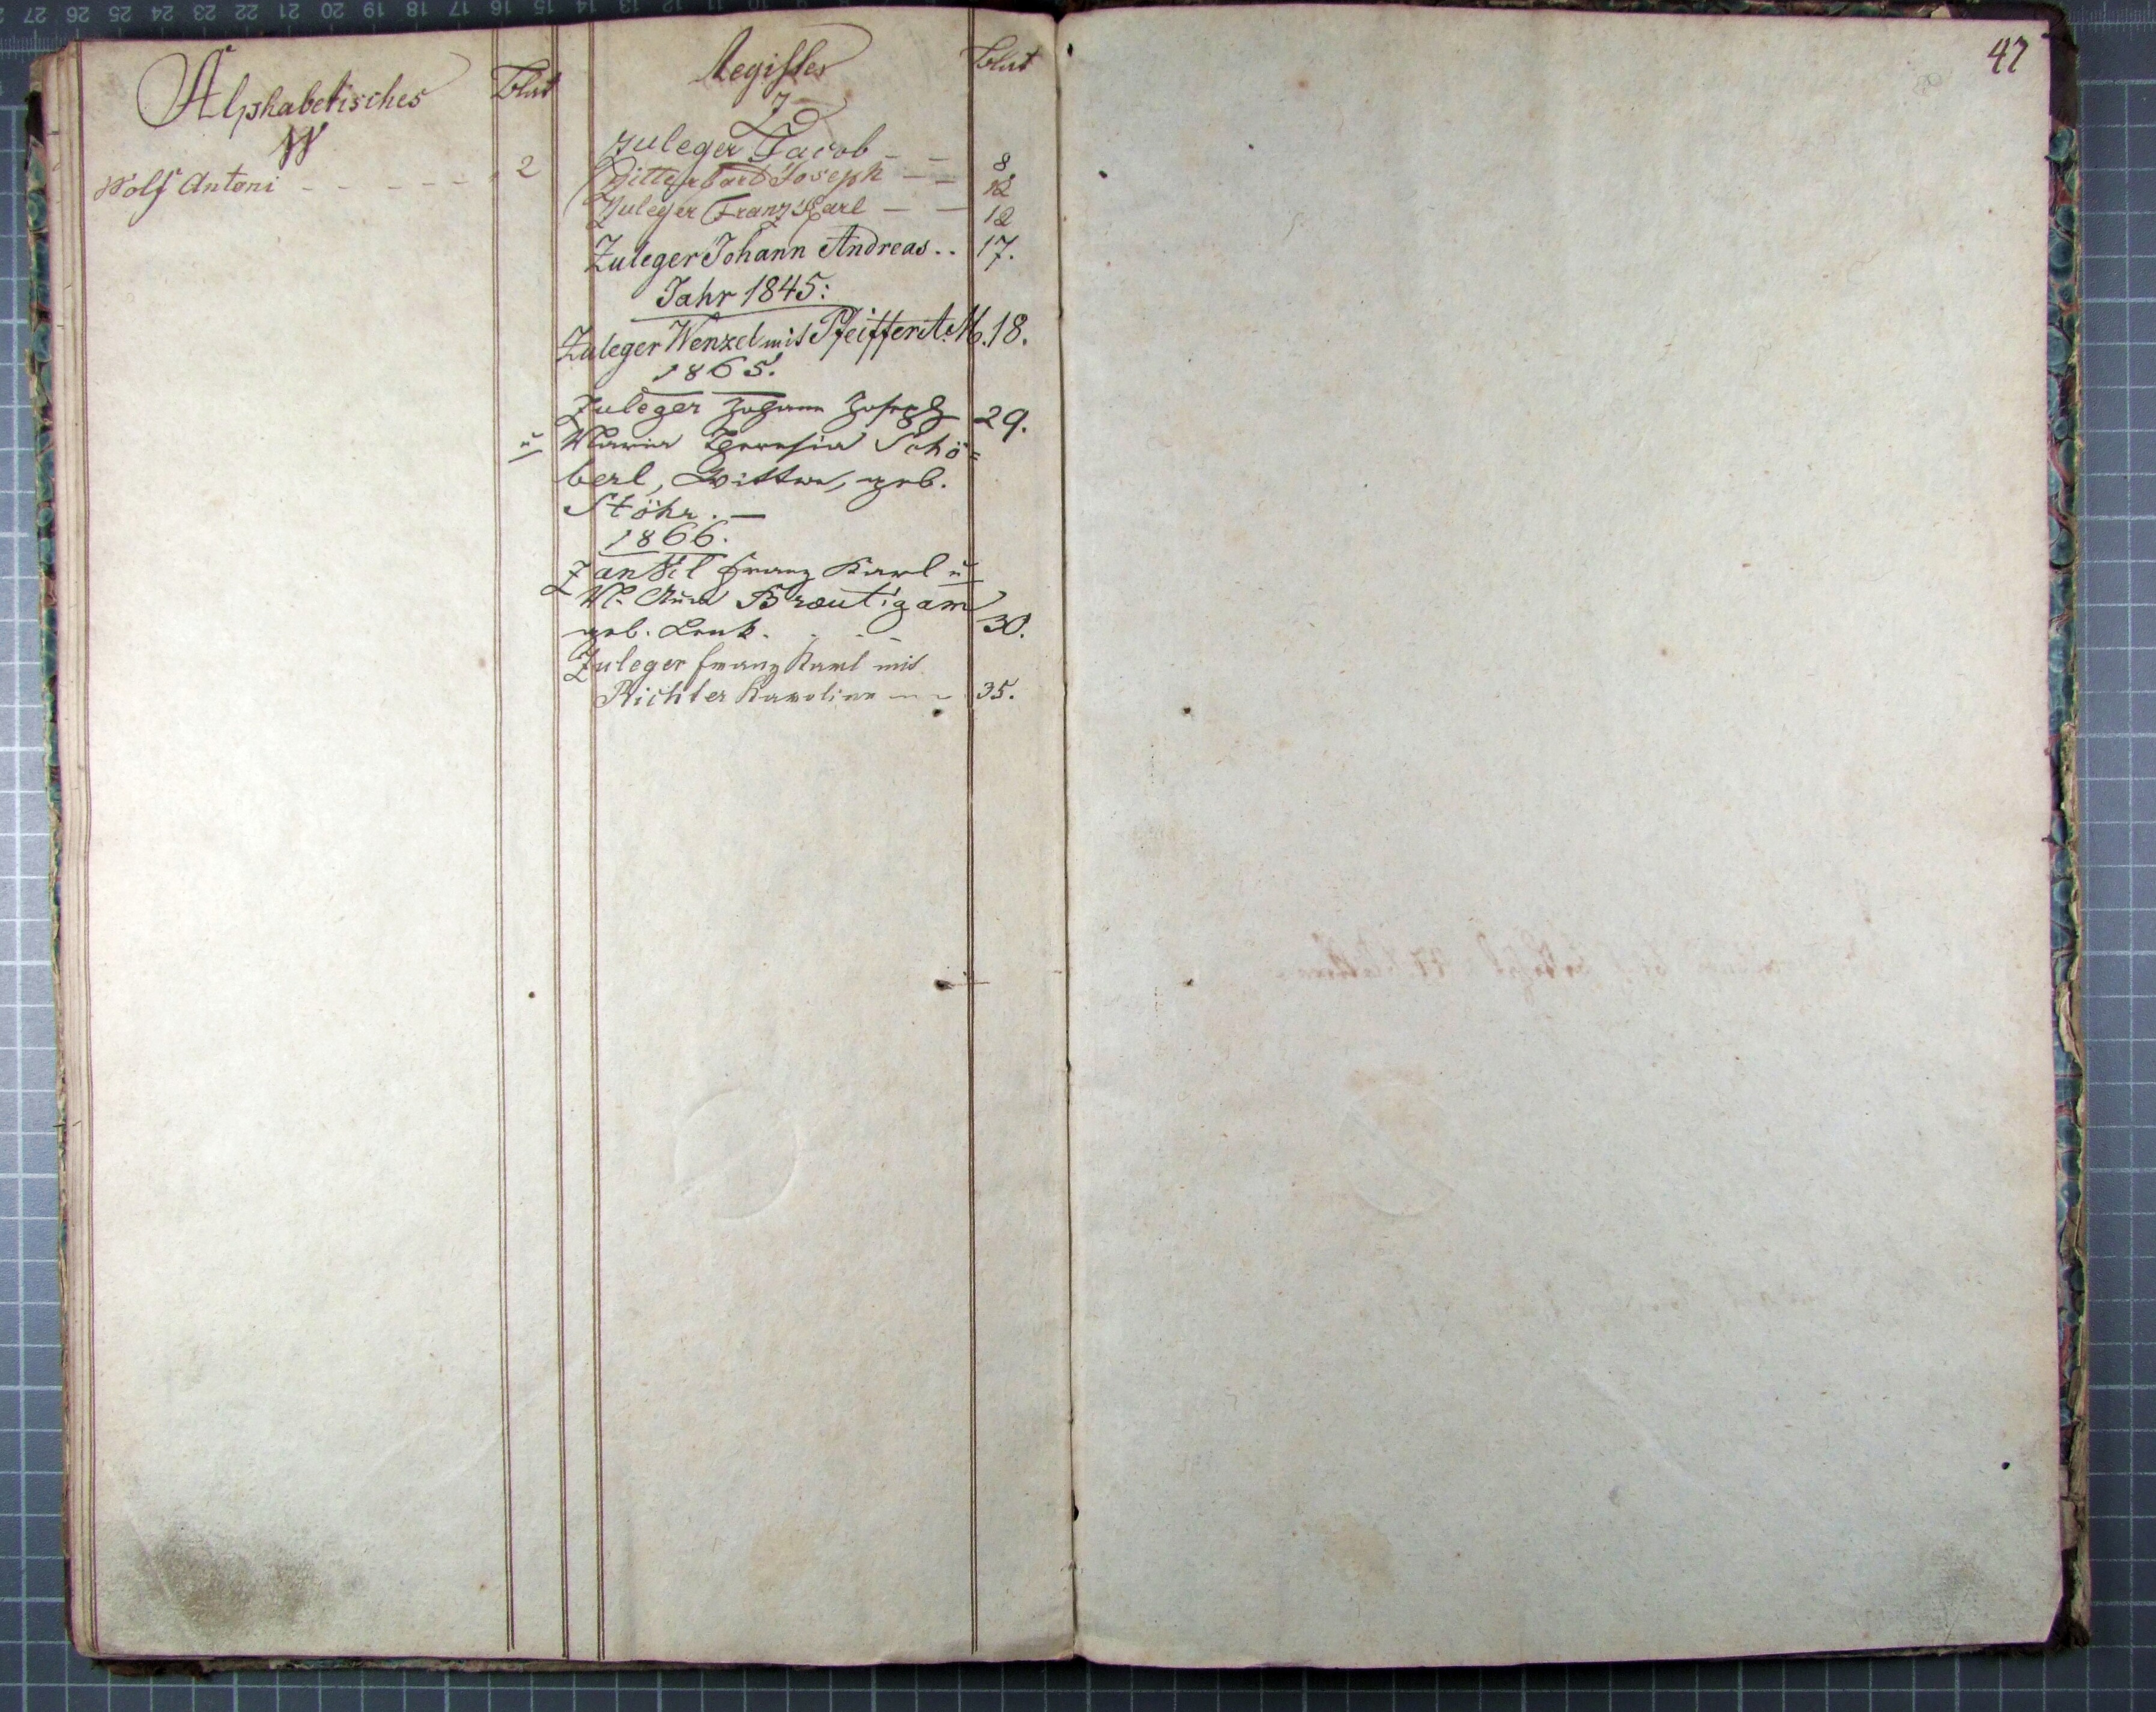 Alphabetisches
Blat
W
Wolf Antoni - - - - - 2
Register
Blat
Z
Zuleger Jacob - - 8
Zitterbart Joseph - - 12
Zuleger Franz Karl - - 12
Zuleger Johann Andreas . . 17.
Jahr 1845:
Zuleger Wenzel mit Pfeiffer A. M. 18.
1865.
Zuleger Johann Joseph 29.
u Maria Theresia Schö=
berl, Wittwe, geb.
Stöhr. —
1866.
Franz Karl u
M. Anna Bräutigam
geb. Lenk. . . - 30.
Zuleger Franz Karl mit
Richter Karoline - - 35.
47